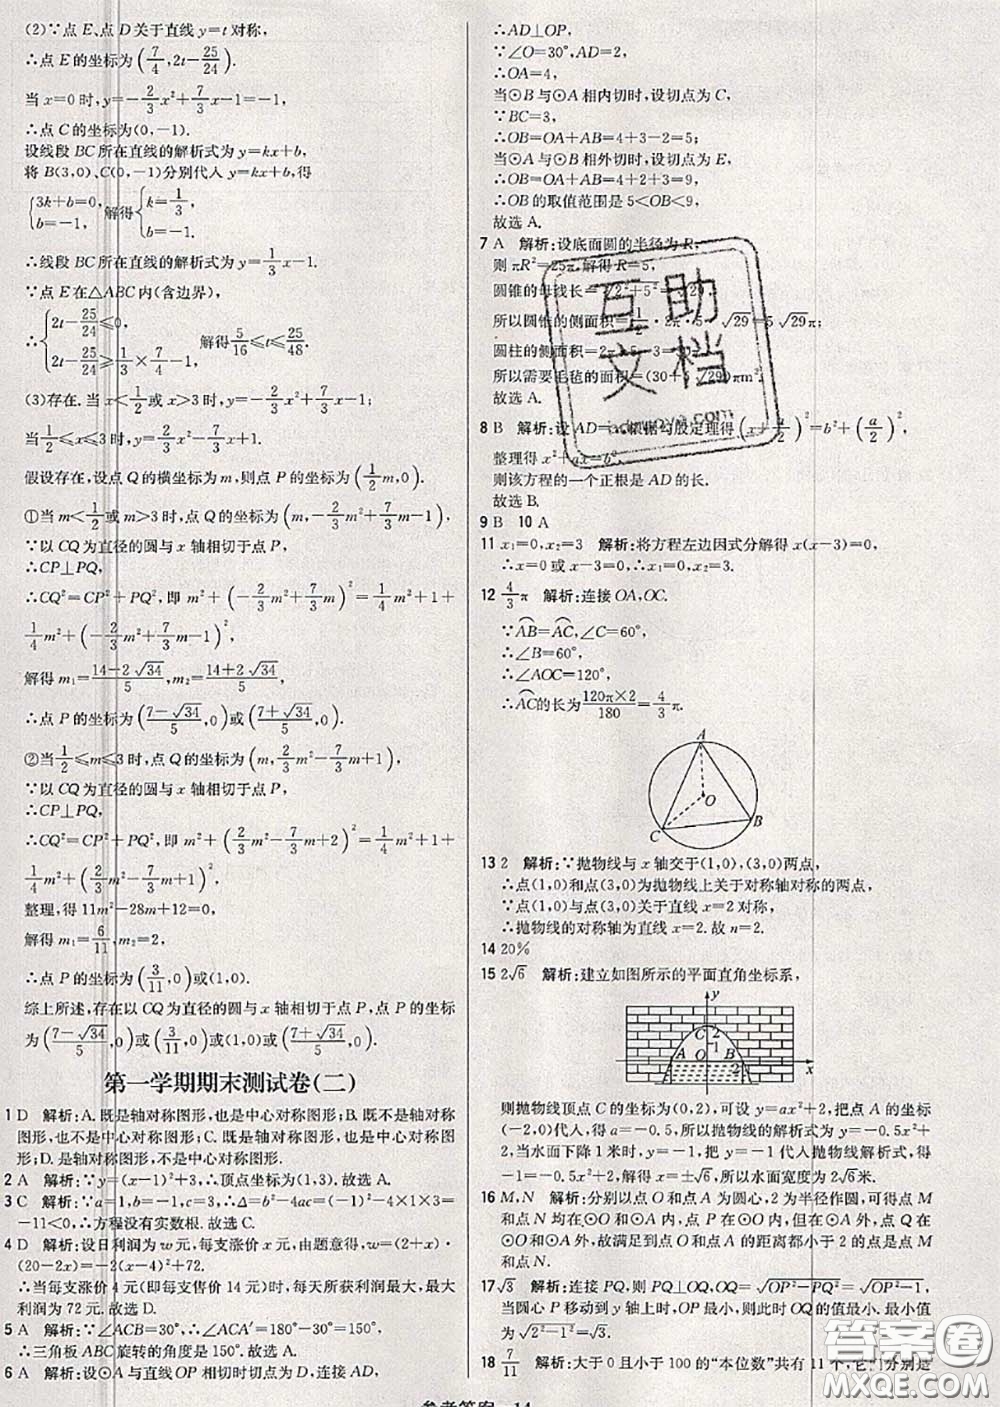 (2)∵点 E、点 D 关于直线 y=t 对称,
∴点 E 的坐标为(7/4, 2t-25/24).
当 x=0 时,y=-2/3x²+7/3x-1=-1,
∴点 C 的坐标为(0,-1).
设线段 BC 所在直线的解析式为 y=kx+b,
将 B(3,0)、C(0,-1)分别代入 y=kx+b,得
{3k+b=0, b=-1, 解得{k=1/3, b=-1,
∴线段 BC 所在直线的解析式为 y=1/3x-1.
∵点 E 在△ABC 内(含边界),
∴{2t-25/24≤0, 2t-25/24≥1/3×7/4-1, 解得5/16≤t≤25/48.
(3)存在. 当 x<1/2或 x>3 时,y=-2/3x²+7/3x-1;
当1/2≤x≤3 时,y=2/3x²-7/3x+1.
假设存在,设点 Q 的横坐标为 m,则点 P 的坐标为(1/2m,0).
①当 m<1/2或 m>3 时,点 Q 的坐标为(m,-2/3m²+7/3m-1),
∵以 CQ 为直径的圆与 x 轴相切于点 P,
∴CP⊥PQ,
∴CQ²=CP²+PQ²,即 m²+(-2/3m²+7/3m)²=1/4m²+1+
1/4m²+(-2/3m²+7/3m-1)²,
解得 m₁=(14-2√34)/5,m₂=(14+2√34)/5,
∴点 P 的坐标为((7-√34)/5,0)或((7+√34)/5,0).
②当1/2≤m≤3 时,点 Q 的坐标为(m,2/3m²-7/3m+1),
∵以 CQ 为直径的圆与 x 轴相切于点 P,
∴CP⊥PQ,
∴CQ²=CP²+PQ²,即 m²+(2/3m²-7/3m+2)²=1/4m²+1+
1/4m²+(2/3m²-7/3m+1)²,
整理,得 11m²-28m+12=0,
解得 m₁=6/11,m₂=2,
∴点 P 的坐标为(3/11,0)或(1,0).
综上所述,存在以 CQ 为直径的圆与 x 轴相切于点 P,点 P 的坐标
为((7-√34)/5,0)或(3/11,0)或(1,0)或((7+√34)/5,0).
第一学期期末测试卷(二)
1 D 解析:A. 既是轴对称图形,也是中心对称图形;B. 既不是轴对称
图形,也不是中心对称图形;C. 既是轴对称图形,也是中心对称图
形;D. 是轴对称图形,不是中心对称图形.
2 A 解析:∵y=(x-1)²+3,∴顶点坐标为(1,3). 故选 A.
3 C 解析:∵a=1,b=-1,c=3,∴Δ=b²-4ac=(-1)²-4×1×3=
-11<0,∴方程没有实数根. 故选 C.
4 D 解析:设日利润为 w 元,每支涨价 x 元,由题意得,w=(2+x)·
(20-2x)=-2(x-4)²+72,
∴当每支涨价 4 元(即每支售价 14 元)时,每天所获利润最大,最大
利润为 72 元. 故选 D.
5 A 解析:∵∠ACB=30°,∴∠ACA′=180°-30°=150°,
∴三角板 ABC 旋转的角度是 150°. 故选 A.
6 A 解析:设⊙A 与直线 OP 相切时切点为 D,连接 AD,
∴AD⊥OP,
∵∠O=30°,AD=2,
∴OA=4,
当⊙B 与⊙A 相内切时,设切点为 C,
∵BC=3,
∴OB=OA+AB=4+3-2=5;
当⊙A 与⊙B 相外切时,设切点为 E,
∴OB=OA+AB=4+2+3=9,
∴OB 的取值范围是 5<OB<9,
故选 A.
7 A 解析:设底面圆的半径为 R,
则 πR²=25π,解得 R=5,
圆锥的母线长=√2²+5²=√29,
所以圆锥的侧面积=1/2·2π·5·√29=5√29π;
圆柱的侧面积=2π·5·3=30π,
所以需要毛毡的面积=(30π+5√29π)m².
故选 A.
8 B 解析:设 AD=x,根据勾股定理得(x+a/2)²=b²+(a/2)²,
整理得 x²+ax=b²,
则该方程的一个正根是 AD 的长.
故选 B.
9 B 10 A
11 x₁=0,x₂=3 解析:将方程左边因式分解得 x(x-3)=0,
∴x=0 或 x-3=0,∴x₁=0,x₂=3.
12 4/3π 解析:连接 OA,OC.
∵AB=AC,∠C=60°,
∴∠B=60°,
∴∠AOC=120°,
∴AC的长为120π×2/180=4/3π.
A
O
C
B
13 2 解析:∵抛物线与 x 轴交于(1,0),(3,0)两点,
∴点(1,0)和点(3,0)为抛物线上关于对称轴对称的两点,
∵点(1,0)与点(3,0)关于直线 x=2 对称,
∴抛物线的对称轴为直线 x=2. 故 n=2.
14 20%
15 2√6 解析:建立如图所示的平面直角坐标系,
y
C 2
1
A O B
2 x
则抛物线顶点 C 的坐标为(0,2),可设 y=ax²+2,把点 A 的坐标
(-2,0)代入,得 a=-0.5,所以抛物线的解析式为 y=-0.5x²+
2,当水面下降 1 米时,把 y=-1 代入抛物线解析式,得
-1=-0.5x²+2,解得 x=±√6,所以水面宽度为 2√6米.
16 M,N 解析:分别以点 O 和点 A 为圆心,2 为半径作圆,可得点 M
和点 N 均在⊙O 和⊙A 内,点 P 在⊙O 内、⊙A 外,点 Q 在
⊙O 外、⊙A 外,故满足到点 O 和点 A 的距离都小于 2 的点是点 M
和点 N.
17 √3 解析:连接 PQ,则 PQ⊥OQ,OQ=√OP²-PQ²=√OP²-1,
当圆心 P 移动到 y 轴上时,OP 最小,则此时 OQ 的值最小. 最小值为
√2²-1²=√3.
18 7/11 解析:大于 0 且小于 100 的“本位数”共有 11 个,它们分别是
参考答案 14
互助
文档
答案圈
MXQE.COM